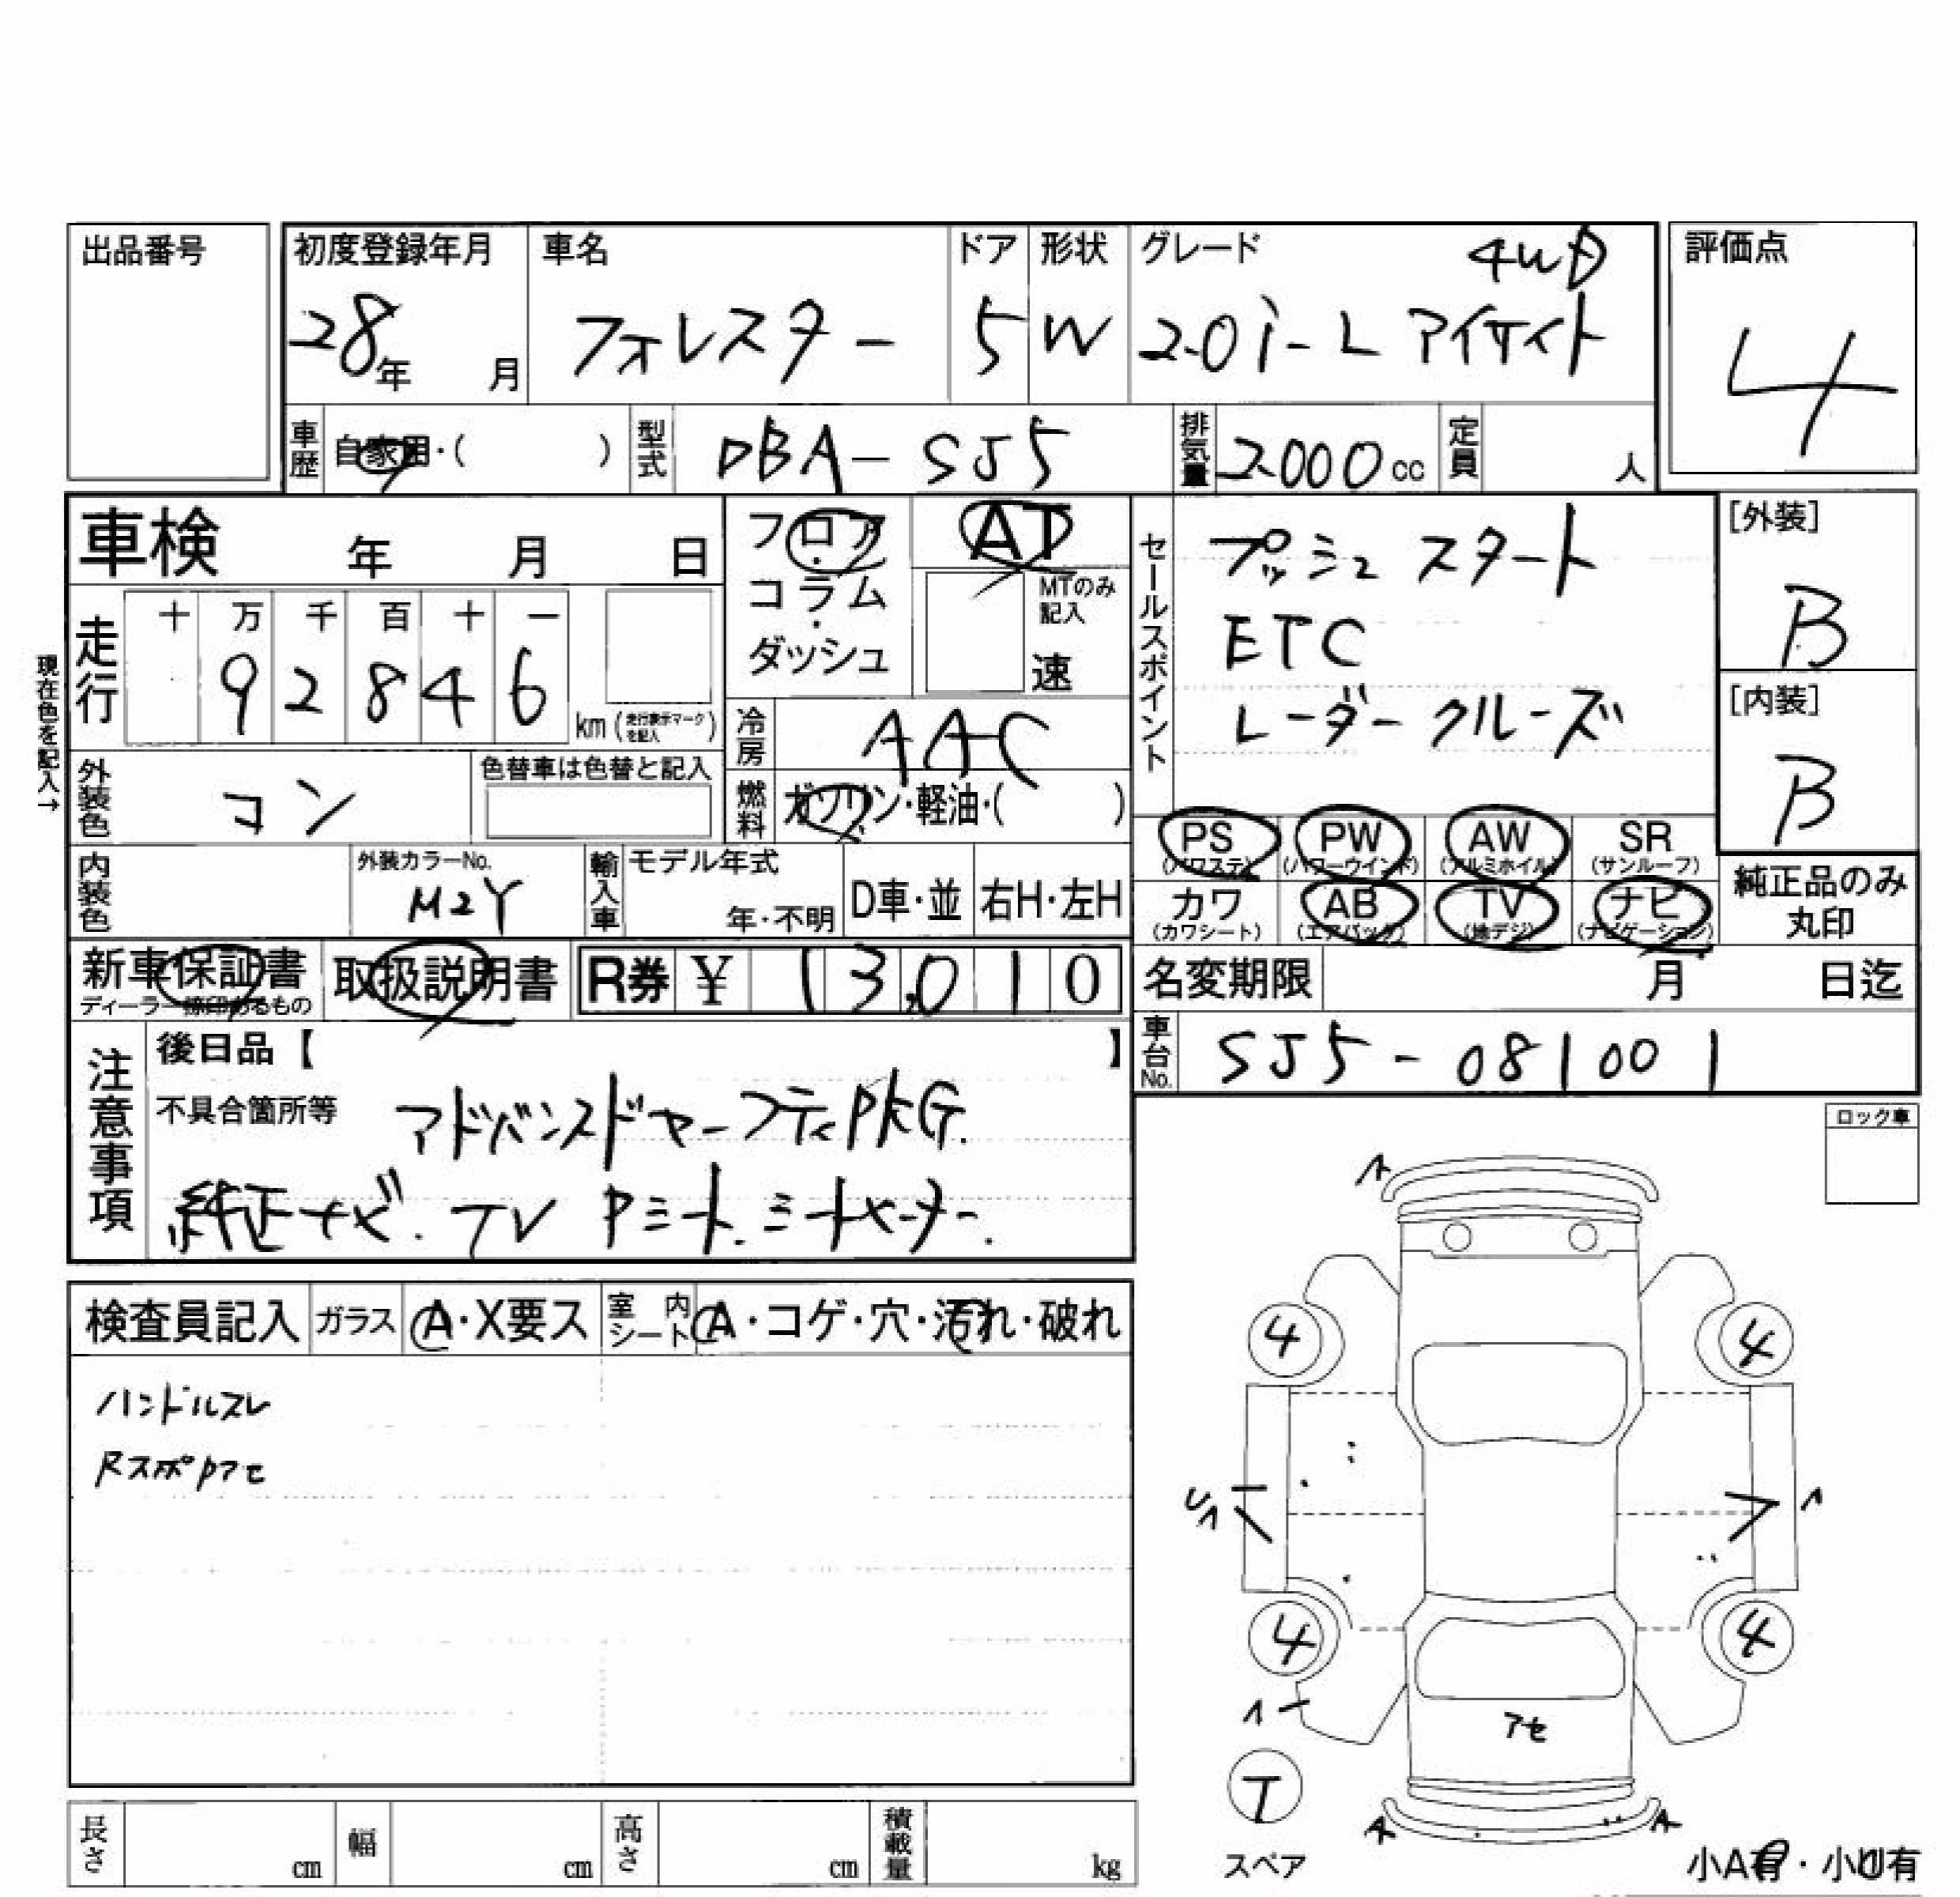 出品番号
初度登録年月 車名 ドア 形状 グレード 4WD 評価点
28年 月 フォレスター 5 W 2.0i-L アイサイト 4
車歴 自家用・( ) 型式 DBA-SJ5 排気量 2000cc 定員 人
車検 年 月 日
フロア・コラム・ダッシュ
AT
MTのみ記入
速
セールスポイント
プッシュスタート
ETC
レーダークルーズ
[外装]
B
[内装]
B
現在色を記入→
走行 十 万 千 百 十 一
9 2 8 4 6 km (走行表示マークを記入)
冷房 AAC
外装色 コン 色替車は色替と記入
燃料 ガソリン・軽油・( )
PS (パワステ) PW (パワーウインド) AW (アルミホイル) SR (サンルーフ)
カワ (カワシート) AB (エアバック) TV (地デジ) ナビ (ナビゲーション)
純正品のみ丸印
内装色 外装カラーNo. M2Y 輸入車 モデル年式 年・不明 D車・並 右H・左H
新車保証書 ディーラー捺印あるもの 取扱説明書 R券 ¥ 13,010
名変期限 月 日迄
車台No. SJ5-081001
注意事項
後日品【 】
不具合箇所等 アドバンスドセーフティPKG.
純正ナビ. TV Pシート. シートヒーター.
ロック車
検査員記入 ガラス A・X要ス 室内シート A・コゲ・穴・汚れ・破れ
ハンドルスレ
RスポPアセ
A
4 4
A
4 4
A
アセ
T
スペア
A A
小A有・小U有
長さ cm 幅 cm 高さ cm 積載量 kg